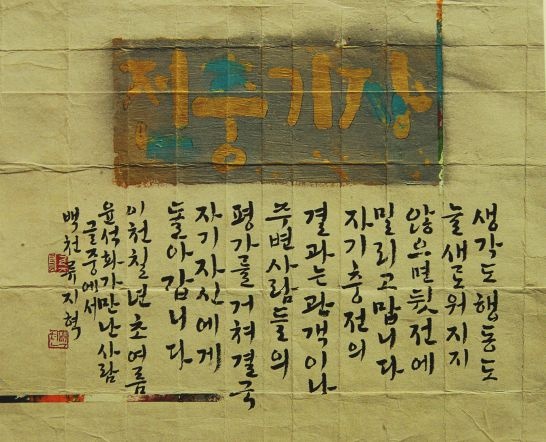 자기충전
생각도행동도
늘새로워지지
않으면뒷전에
밀리고맙니다
자기충전의
결과는관객이나
주변사람들의
평가를거쳐결국
자기자신에게
돌아갑니다
이천칠년초여름
윤석화가만난사람
글중에서
백천류지혁